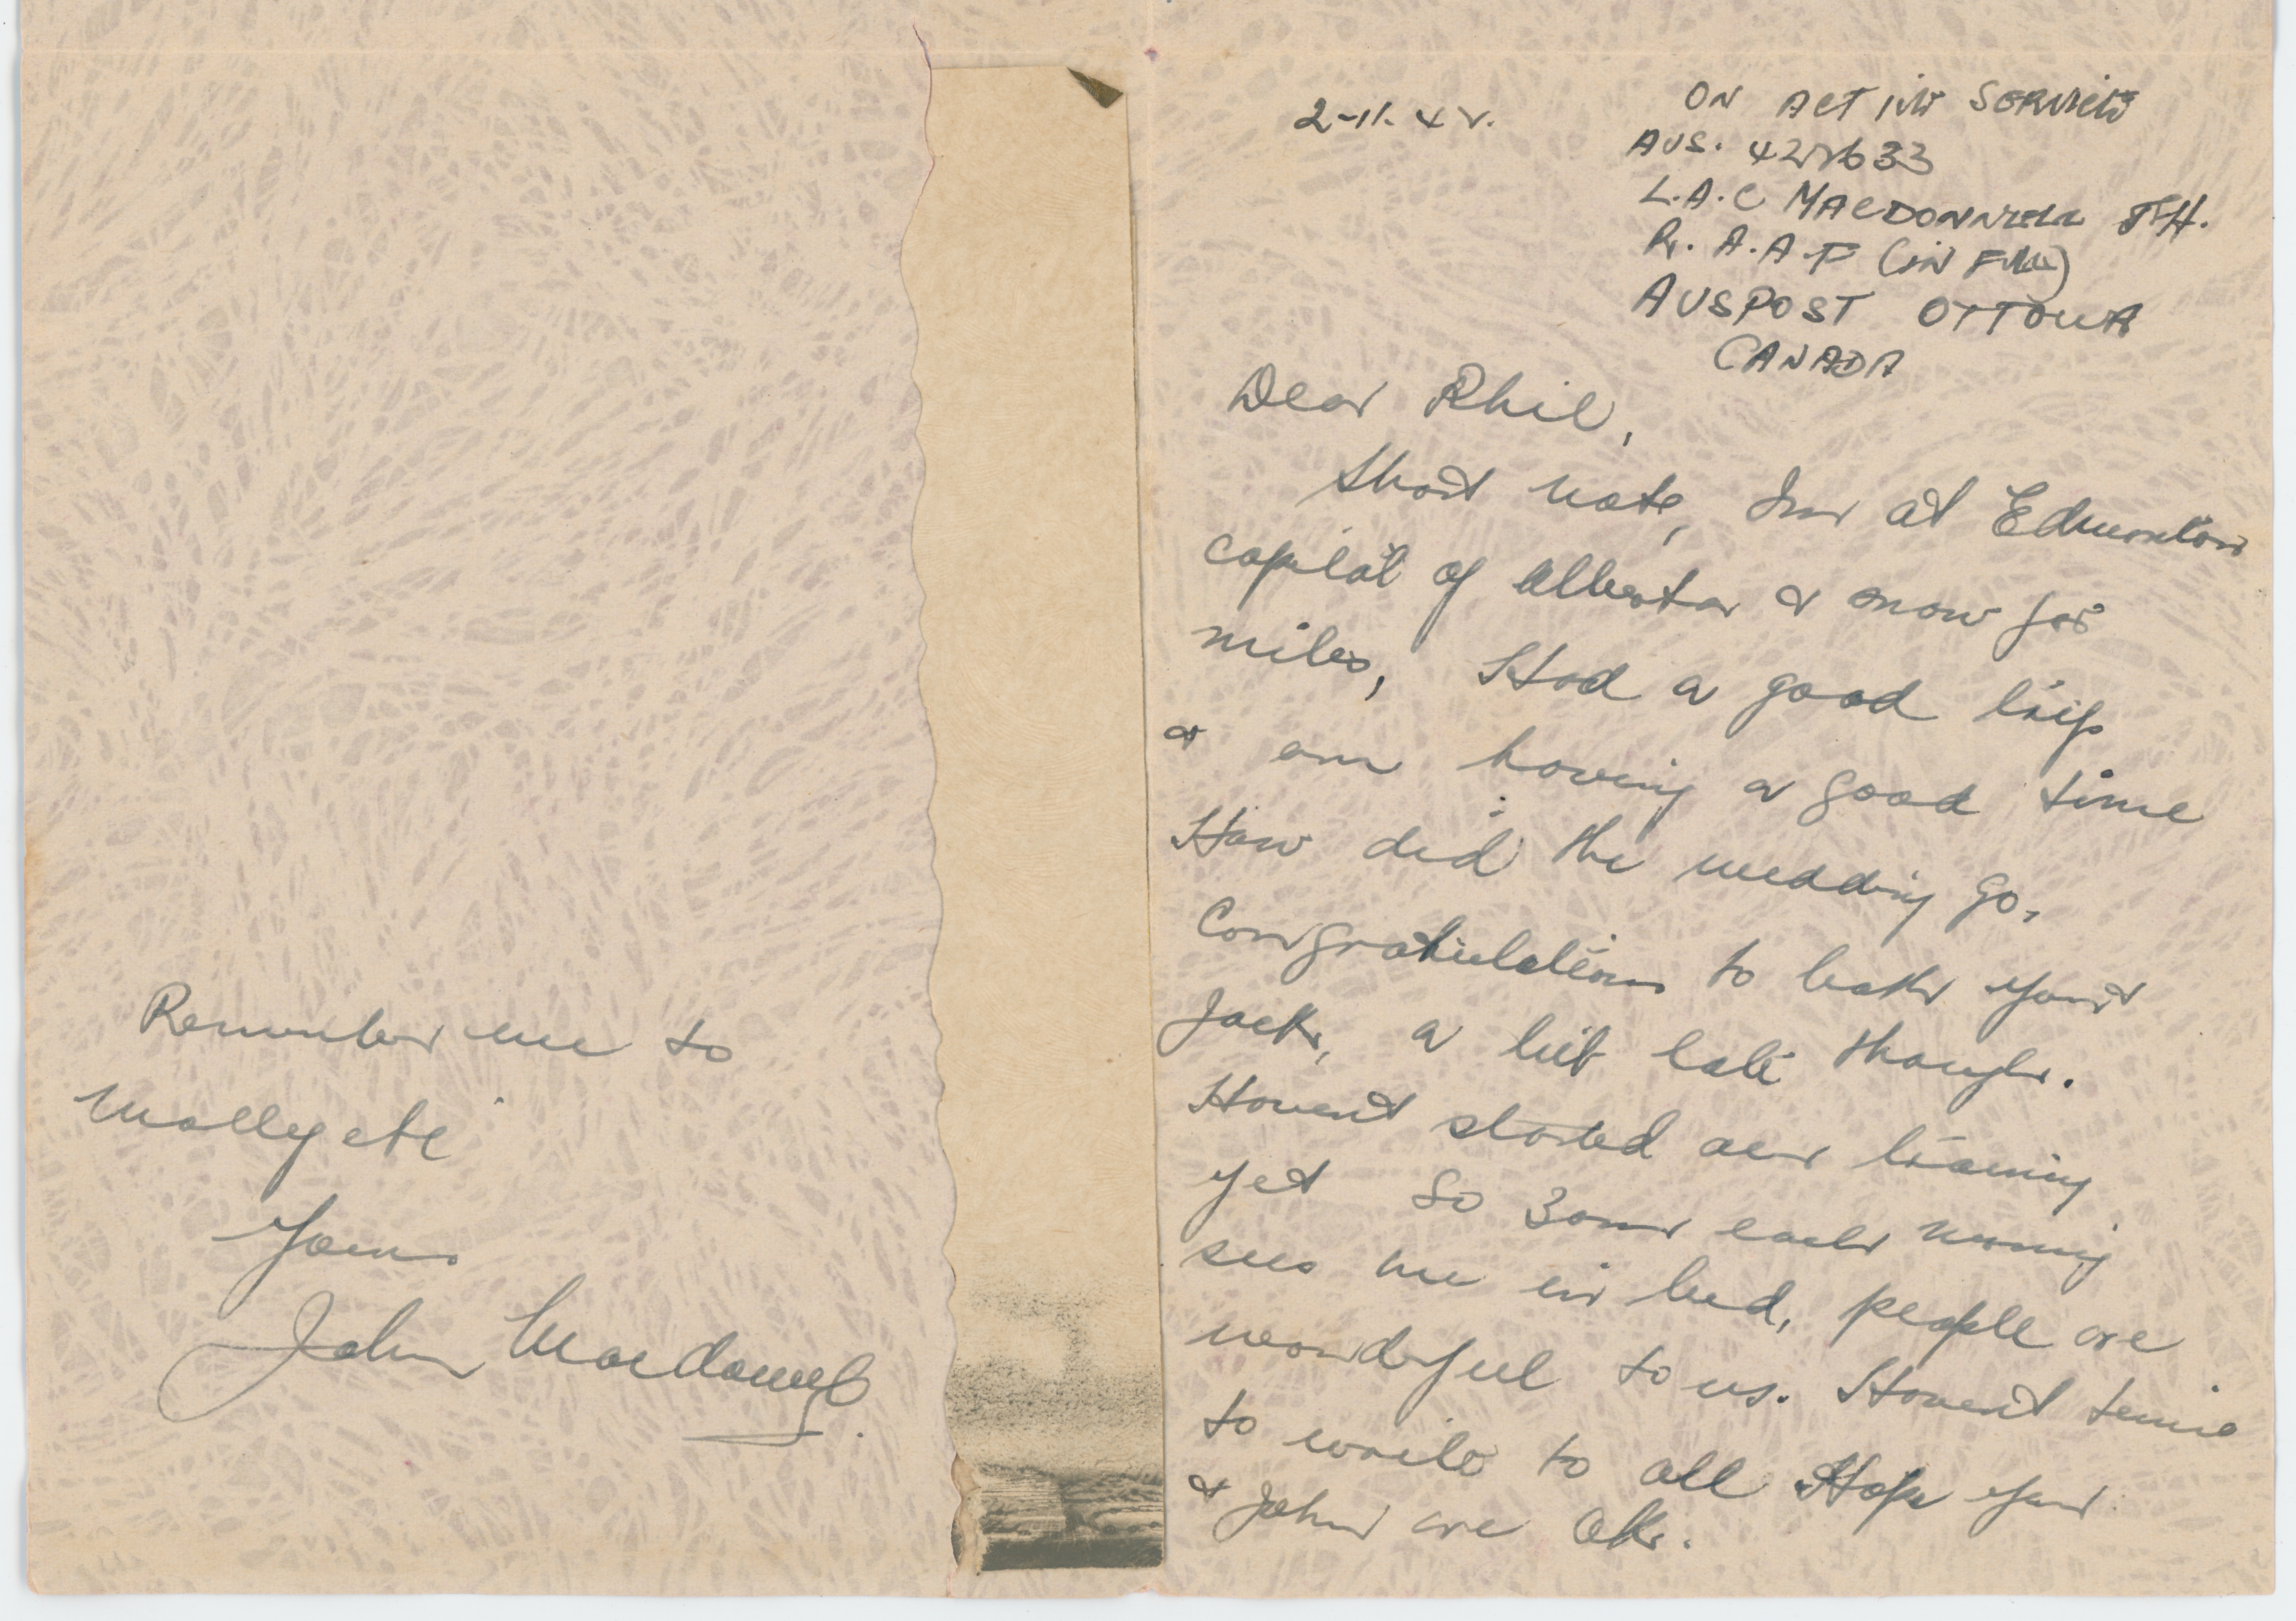 2-11-42.
ON ACTIVE SERVICE
AUS. 422633
L.A.C MACDONNELL J.H.
R.A.A.F (IN FULL)
AUSPOST OTTOWA
CANADA
Dear Phil,
Short note, Im at Edmonton
capital of Alberta & snow for
miles, Had a good trip
& am having a good time
How did the wedding go,
Congratulations to both you &
Jack, a bit late though.
Havent started our training
yet so 3am each morning
sees me in bed, people are
wonderful to us. Havent time
to write to all Hope you
& John are OK.
Remember me to
Molly etc
Yours
John Macdonnell.